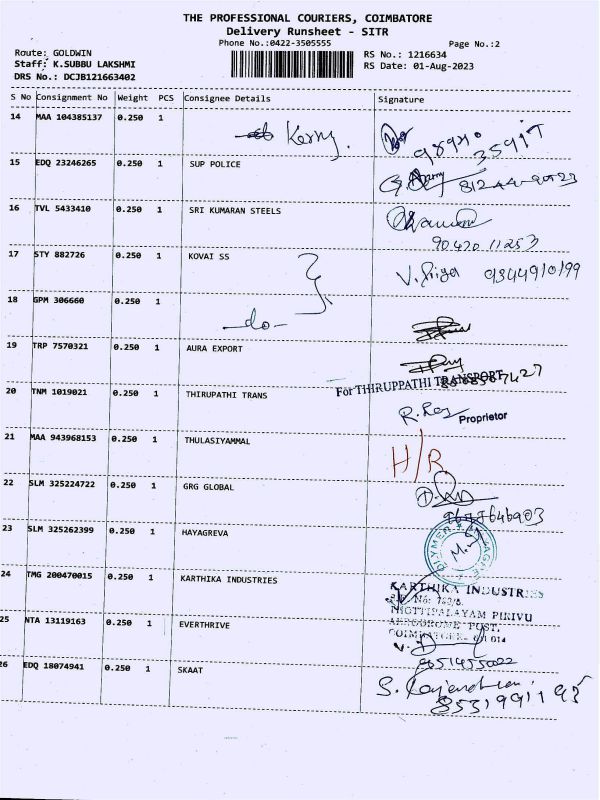 THE PROFESSIONAL COURIERS, COIMBATORE
Delivery Runsheet - SITR
Phone No.:0422-3505555
Page No.:2
Route: GOLDWIN
Staff: K.SUBBU LAKSHMI
DRS No.: DCJB121663402
RS No.: 1216634
RS Date: 01-Aug-2023
S No Consignment No Weight PCS Consignee Details Signature
14 MAA 104385137 0.250 1
15 EDQ 23246265 0.250 1 SUP POLICE
16 TVL 5433410 0.250 1 SRI KUMARAN STEELS
90420 11253
17 STY 882726 0.250 1 KOVAI SS
18 GPM 306660 0.250 1
-do-
19 TRP 7570321 0.250 1 AURA EXPORT
For THIRUPPATHI TRANSPORT
20 TNM 1019021 0.250 1 THIRUPATHI TRANS
Proprietor
21 MAA 943968153 0.250 1 THULASIYAMMAL H/R
22 SLM 325224722 0.250 1 GRG GLOBAL
23 SLM 325262399 0.250 1 HAYAGREVA
24 TMG 200470015 0.250 1 KARTHIKA INDUSTRIES
KARTHIKA INDUSTRIES
AERODROME POST,
25 NTA 13119163 0.250 1 EVERTHRIVE
9651455022
26 EDQ 18074941 0.250 1 SKAAT